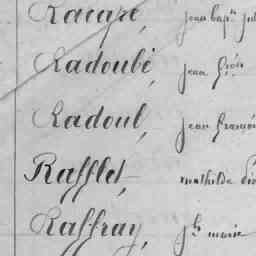 Racapé, jean bap.te jul
Radoubé, jean f.çois
Radoul, jean françois
Rafflet, mathilde
Raffray, j.h marie